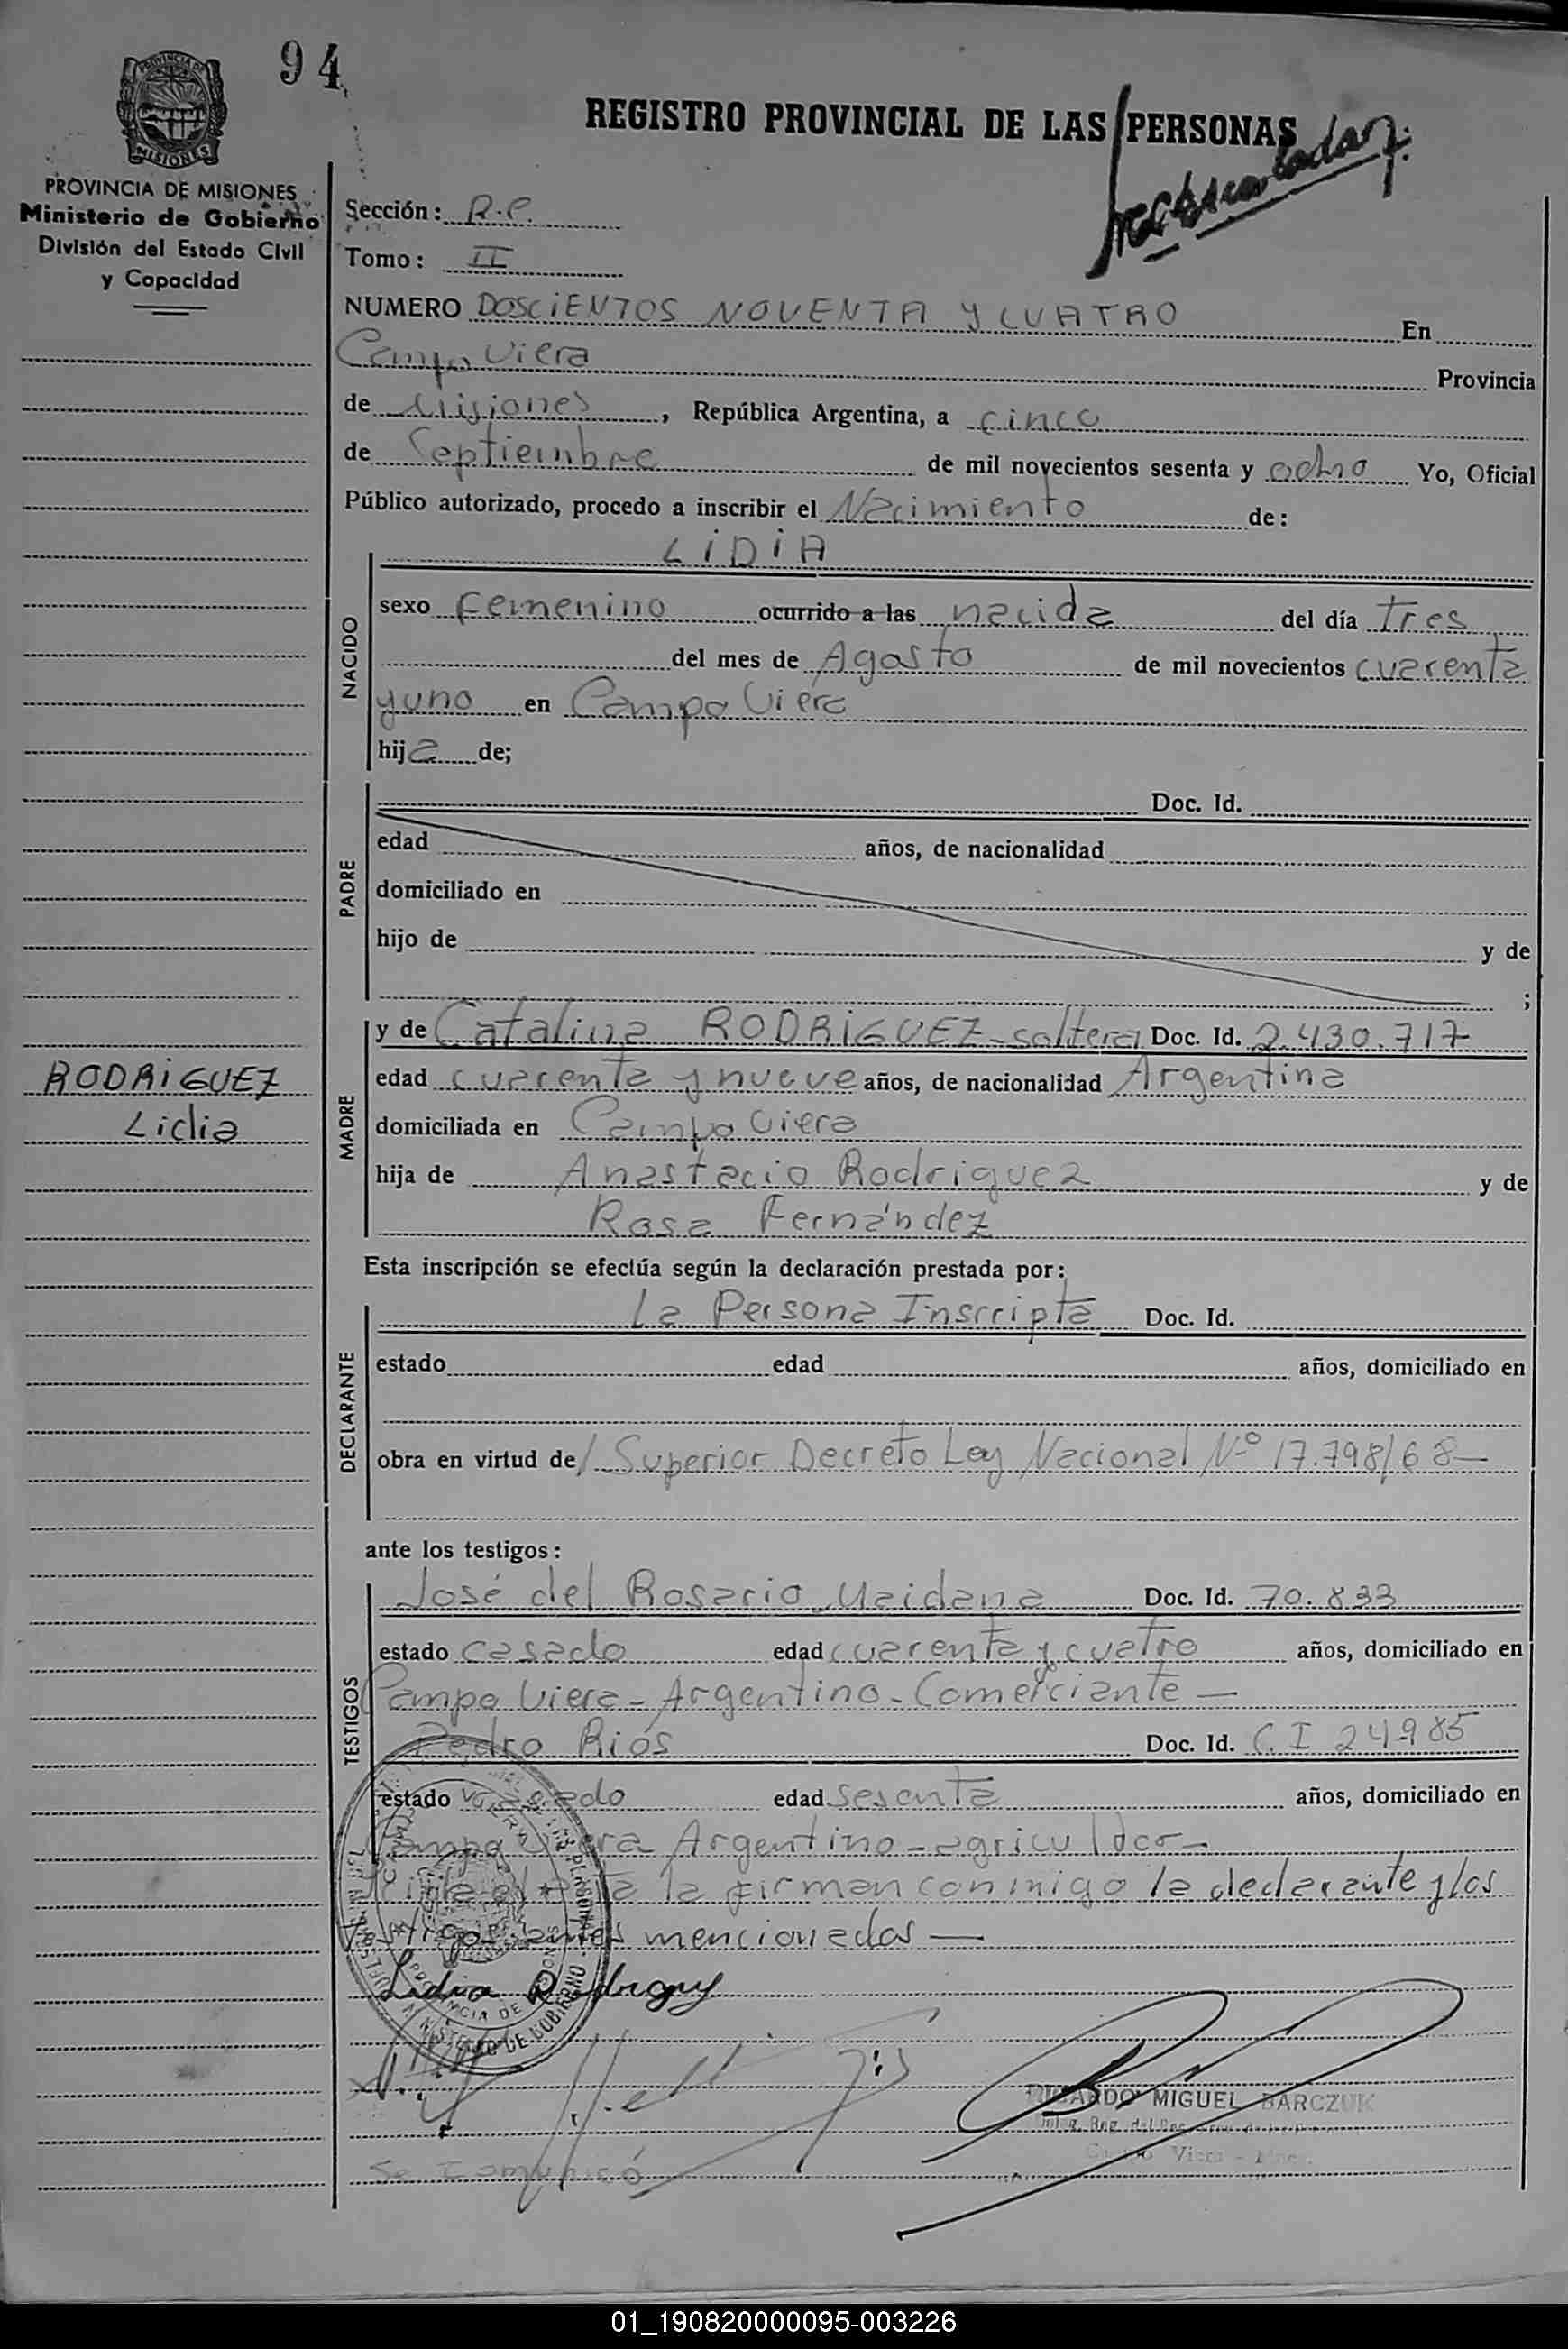 94
PROVINCIA DE MISIONES
Ministerio de Gobierno
División del Estado Civil
y Capacidad
REGISTRO PROVINCIAL DE LAS PERSONAS
Sección: R.C.
Tomo: II
NUMERO DOSCIENTOS NOVENTA Y CUATRO En
Campo Viera Provincia
de Misiones, República Argentina, a cinco
de Septiembre de mil novecientos sesenta y ocho Yo, Oficial
Público autorizado, procedo a inscribir el Nacimiento de:
LIDIA
NACIDO
sexo femenino ocurrido a las nacida del día tres
del mes de Agosto de mil novecientos cuarenta
y uno en Campo Viera
hija de;
PADRE
Doc. Id.
edad años, de nacionalidad
domiciliado en
hijo de y de
;
RODRIGUEZ
Lidia
MADRE
y de Catalina RODRIGUEZ - soltera Doc. Id. 2.430.717
edad cuarenta y nueve años, de nacionalidad Argentina
domiciliada en Campo Viera
hija de Anastacio Rodriguez y de
Rosa Fernández
Esta inscripción se efectúa según la declaración prestada por:
DECLARANTE
La Persona Inscripta Doc. Id.
estado edad años, domiciliado en
obra en virtud de/ Superior Decreto Ley Nacional Nº 17.798/68—
ante los testigos:
TESTIGOS
José del Rosario Maidana Doc. Id. 70.833
estado casado edad cuarenta y cuatro años, domiciliado en
Campo Viera - Argentino - Comerciante —
Pedro Riós Doc. Id. C.I 24985
estado edad sesenta años, domiciliado en
Campo Viera Argentino - agricultor -
la firman conmigo la declarante y los
testigos antes mencionados —
Lidia Rodriguez
RICARDO MIGUEL BARCZUK
Campo Viera
Se comunicó
01_190820000095-003226